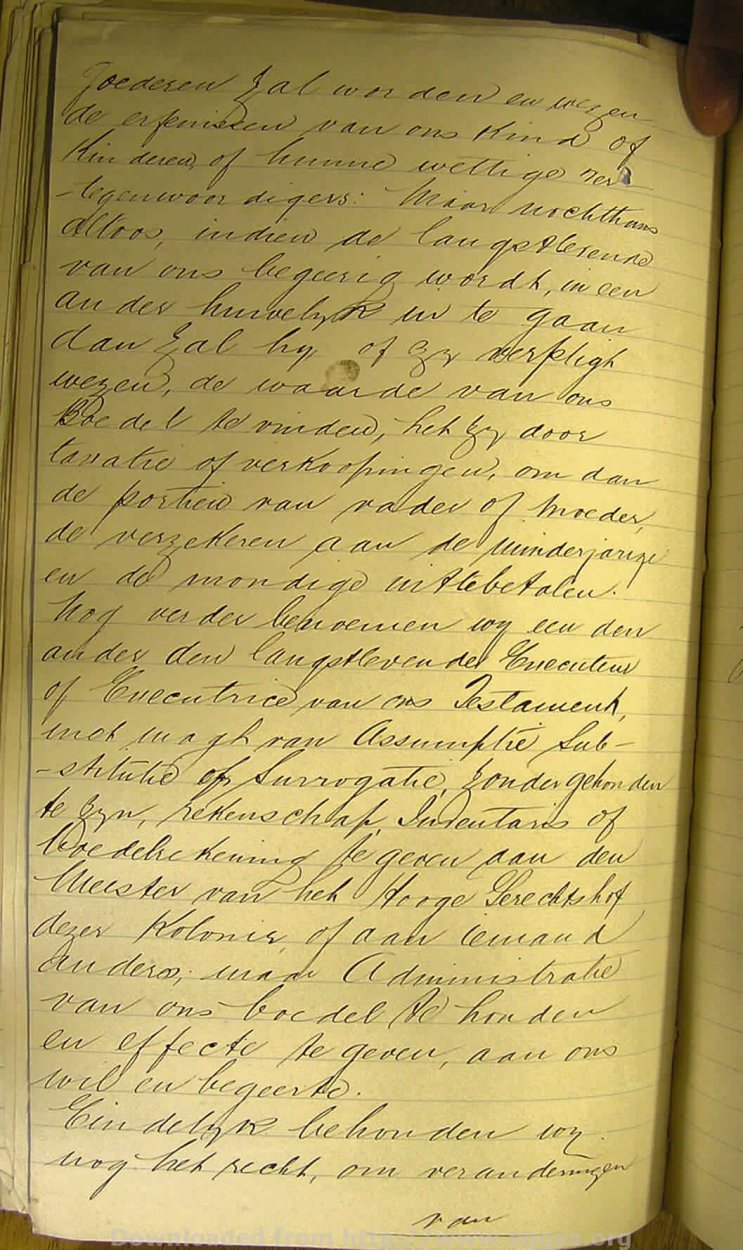 Goederen zal worden en wezen
de erfenissen van ons Kind of
Kinderen, of hunne wettige ver
-tegenwoordigers: Maar nochthans
altoos, indien de langstlevende
van ons begeerig wordt, in een
ander huwelyk in te gaan
dan zal hy of zy verpligh
wezen, de waarde van ons
Boedel te vinden, het zy door
taxatie of verkoopingen, om dan
de portien van vader of moeder,
de verzekeren aan de minderjarige
en de mondige uittebetalen.
Nog verder benoemen wy een den
ander den langstlevenden Executeur
of Executrice van ons Testament,
met magh van Assumptie, Sub-
-stitutie of Surrogatie, zonder gehouden
te zyn, rekenschap, Inventaris of
boedelrekening te geven aan den
Meester van het Hooge Gerechtshof
dezer Kolonie, of aan iemand
anders; maar Administratie
van ons boedel te houden
en effecte te geven, aan ons
wil en begeerte.
Eindelyk behouden wy
nog het recht, om veranderingen
van
Downloaded from http://www.eggsa.org